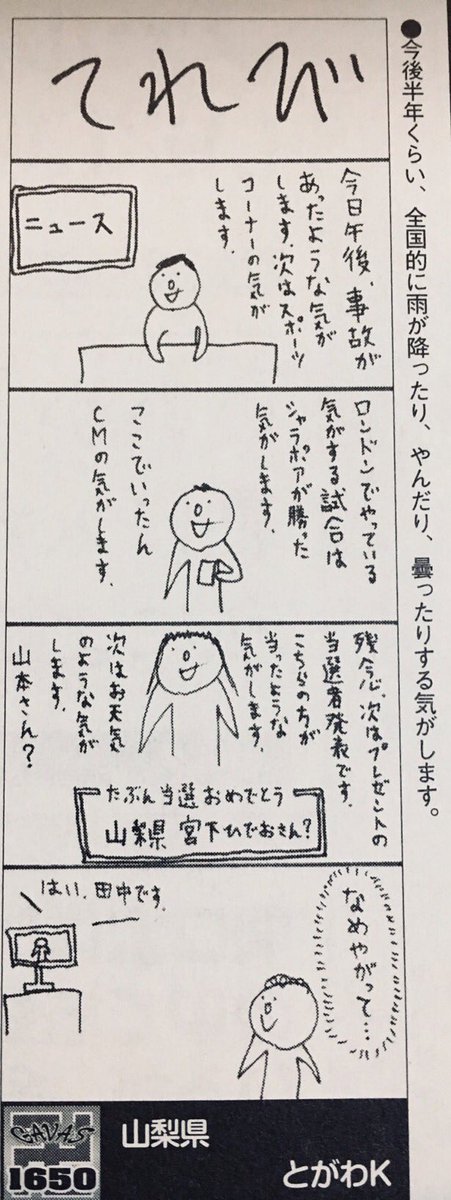 ●今後半年くらい、全国的に雨が降ったり、やんだり、曇ったりする気がします。
てれび
今日午後、事故が
あったような気が
します。次はスポーツ
コーナーの気が
します。
ニュース
ロンドンでやっている
気がする試合は
シャラポアが勝った
気がします。
ここでいったん
CMの気がします。
残念、次はプレゼントの
当選者発表です。
こちらの方が
当ったような
気がします。
次はお天気
のような気が
します。
山本さん?
たぶん当選おめでとう
山梨県 宮下ひでおさん?
なめやがって…
はい、田中です。
CAVAS
1650
山梨県
とがわK